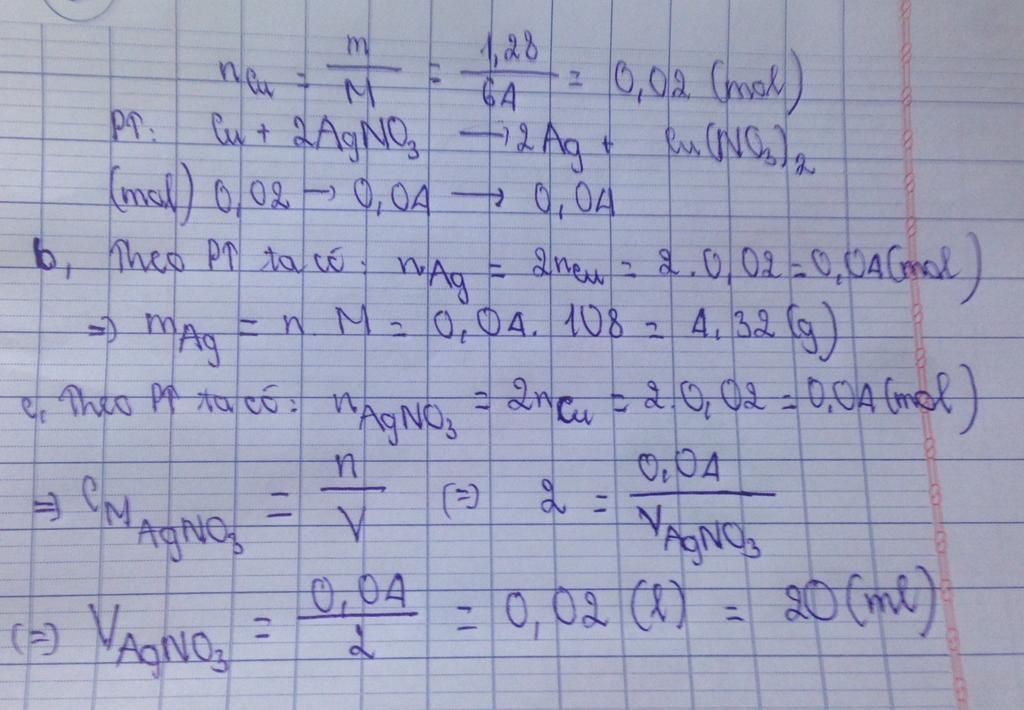 nCu = m/M = 1,28/64 = 0,02 (mol)
PT: Cu + 2AgNO3 → 2Ag + Cu(NO3)2
(mol) 0,02 → 0,04 → 0,04
b, Theo PT ta có: nAg = 2nCu = 2.0,02 = 0,04(mol)
=> mAg = n.M = 0,04.108 = 4,32(g)
c, Theo PT ta có: nAgNO3 = 2nCu = 2.0,02 = 0,04(mol)
=> CM AgNO3 = n/V (=) 2 = 0,04/VAgNO3
(=) VAgNO3 = 0,04/2 = 0,02 (l) = 20(ml)